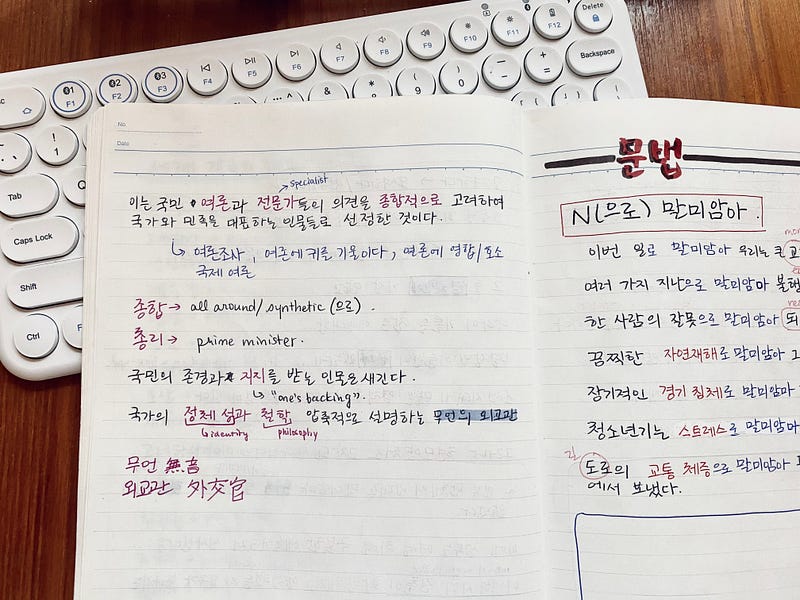 Delete
F1
F2
F3
F4
F5
F6
F7
F8
F9
F10
F11
F12
Backspace
Tab
Caps Lock
Shift
Ctrl
No.
Date
specialist
이는 국민 여론과 전문가들의 의견을 종합적으로 고려하여
국가와 민족을 대표하는 인물들로 선정한 것이다.
여론조사, 여론에 귀를 기울이다, 여론에 영합/호소
국제 여론
종합→ all around/synthetic (으로).
총리→ prime minister.
국민의 존경과 지지를 받는 인물을 새긴다.
"one's backing".
국가의 정체성과 철학 압축적으로 설명하는 무언의 외교관
identity philosophy
무언 無言
외교관 外交官
문법
N(으로) 말미암아.
이번 일로 말미암아 우리는 큰
여러 가지 지난으로 말미암아 불행
한 사람의 잘못으로 말미암아 되
끔찍한 자연재해로 말미암아
장기적인 경기 침체로 말미암아
청소년기는 스트레스로 말미암아
도로의 교통 체증으로 말미암아
에서 보냈다.